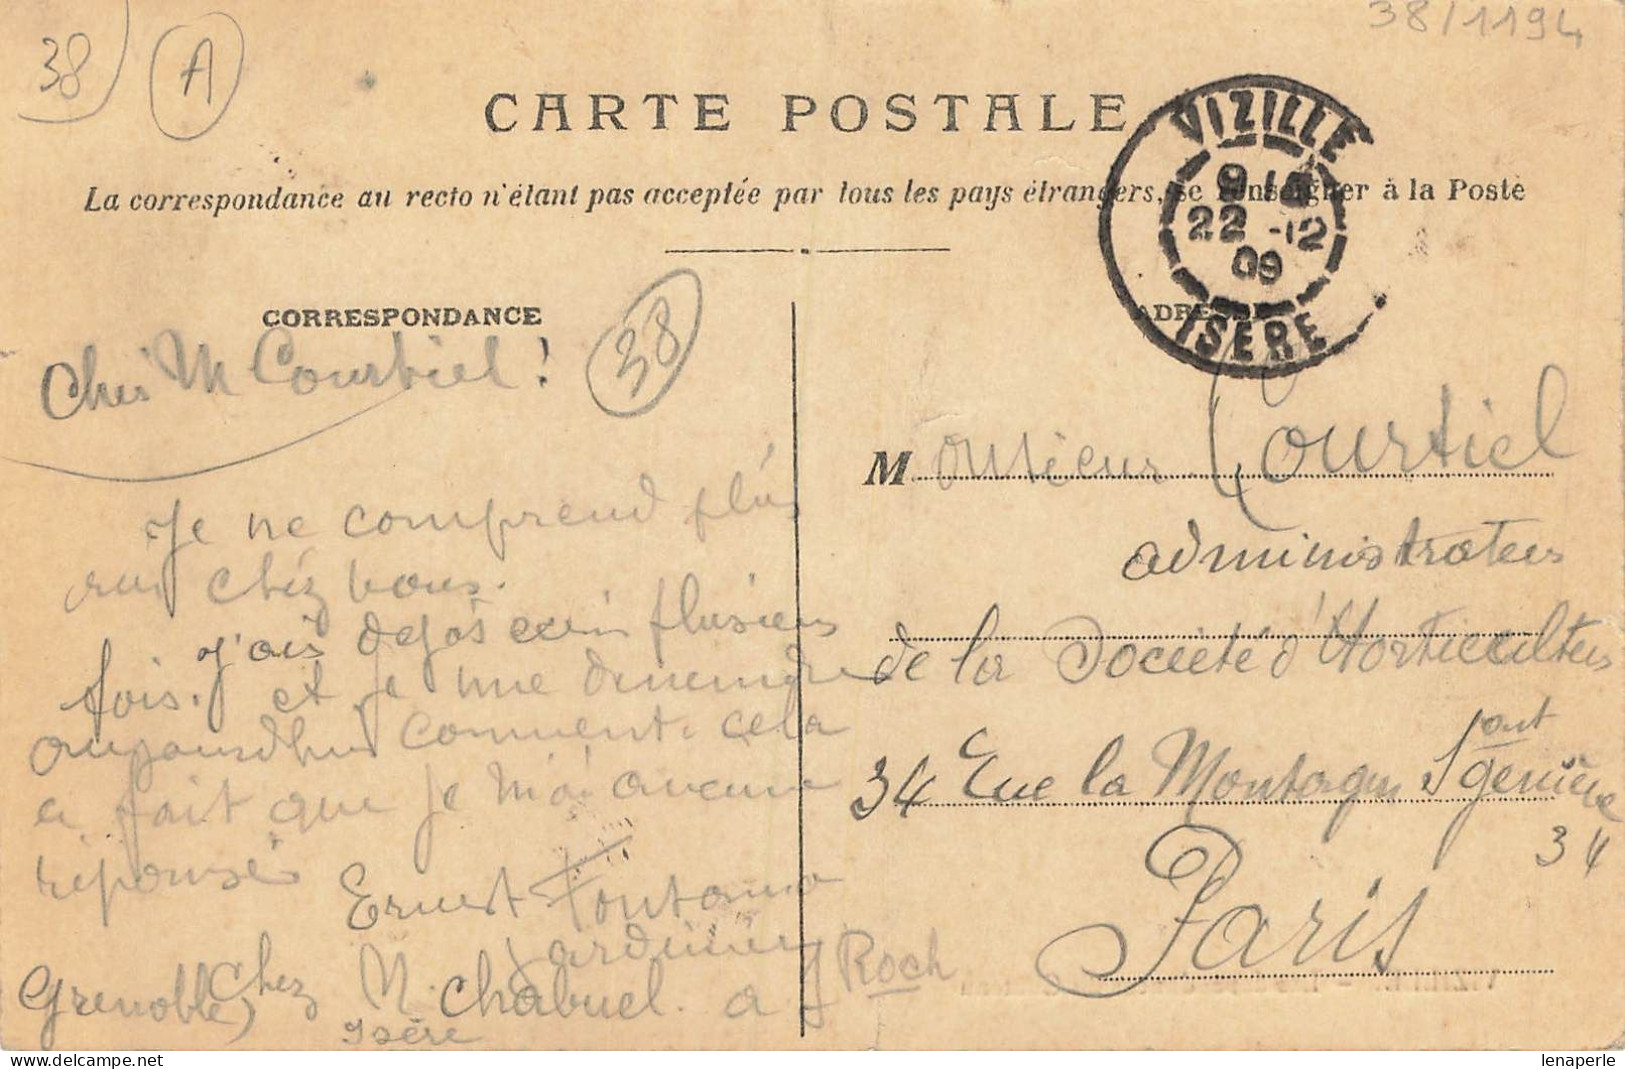 38/1194
38
A
CARTE POSTALE
La correspondance au recto n'étant pas acceptée par tous les pays étrangers, se renseigner à la Poste
VIZILLE
22 -12
09
ISÈRE
CORRESPONDANCE
38
ADRESSE
Cher M Courtiel !
Je ne comprend plus
rien chéz vous.
J'ais dejas ecris plusieurs
fois. et je me demende
aujourd'hui comment cela
a fait que je n'ai aucune
réponse
Ernest Fontana
Jardinier
chez M. Chabuel. a St Roch
Grenoble
Isère
Monsieur Courtiel
administrateur
de la Societé d'Horticulteur
34 Rue la Montagne St Geniève
34
Paris
delcampe.net
lenaperle